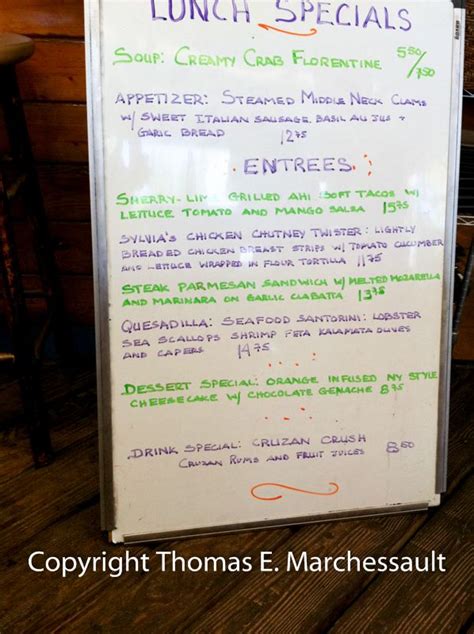 LUNCH SPECIALS
SOUP: CREAMY CRAB FLORENTINE 5.50/7.50
APPETIZER: STEAMED MIDDLE NECK CLAMS
W/ SWEET ITALIAN SAUSAGE, BASIL AU JUS +
GARLIC BREAD 12.75
ENTREES
SHERRY-LIME GRILLED AHI SOFT TACOS W/
LETTUCE TOMATO AND MANGO SALSA 15.75
SYLVIA'S CHICKEN CHUTNEY TWISTER: LIGHTLY
BREADED CHICKEN BREAST STRIPS W/ TOMATO CUCUMBER
AND LETTUCE WRAPPED IN FLOUR TORTILLA 11.75
STEAK PARMESAN SANDWICH W/ MELTED MOZARELLA
AND MARINARA ON GARLIC CIABATTA 13.75
QUESADILLA: SEAFOOD SANTORINI: LOBSTER
SEA SCALLOPS SHRIMP FETA KALAMATA OLIVES
AND CAPERS 14.75
DESSERT SPECIAL: ORANGE INFUSED NY STYLE
CHEESECAKE W/ CHOCOLATE GENACHE 8.75
DRINK SPECIAL: CRUZAN CRUSH
CRUZAN RUMS AND FRUIT JUICES 8.50
Copyright Thomas E. Marchessault